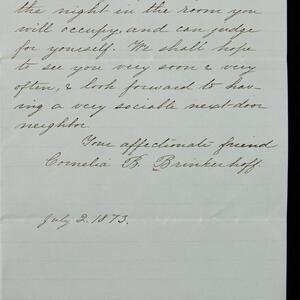 the night in the room you
will occupy, and can judge
for yourself. We shall hope
to see you very soon & very
often, & look forward to hav-
ing a very sociable next-door
neighbor
Your affectionate friend
Cornelia B. Brinkerhoff.
July 2. 1873.